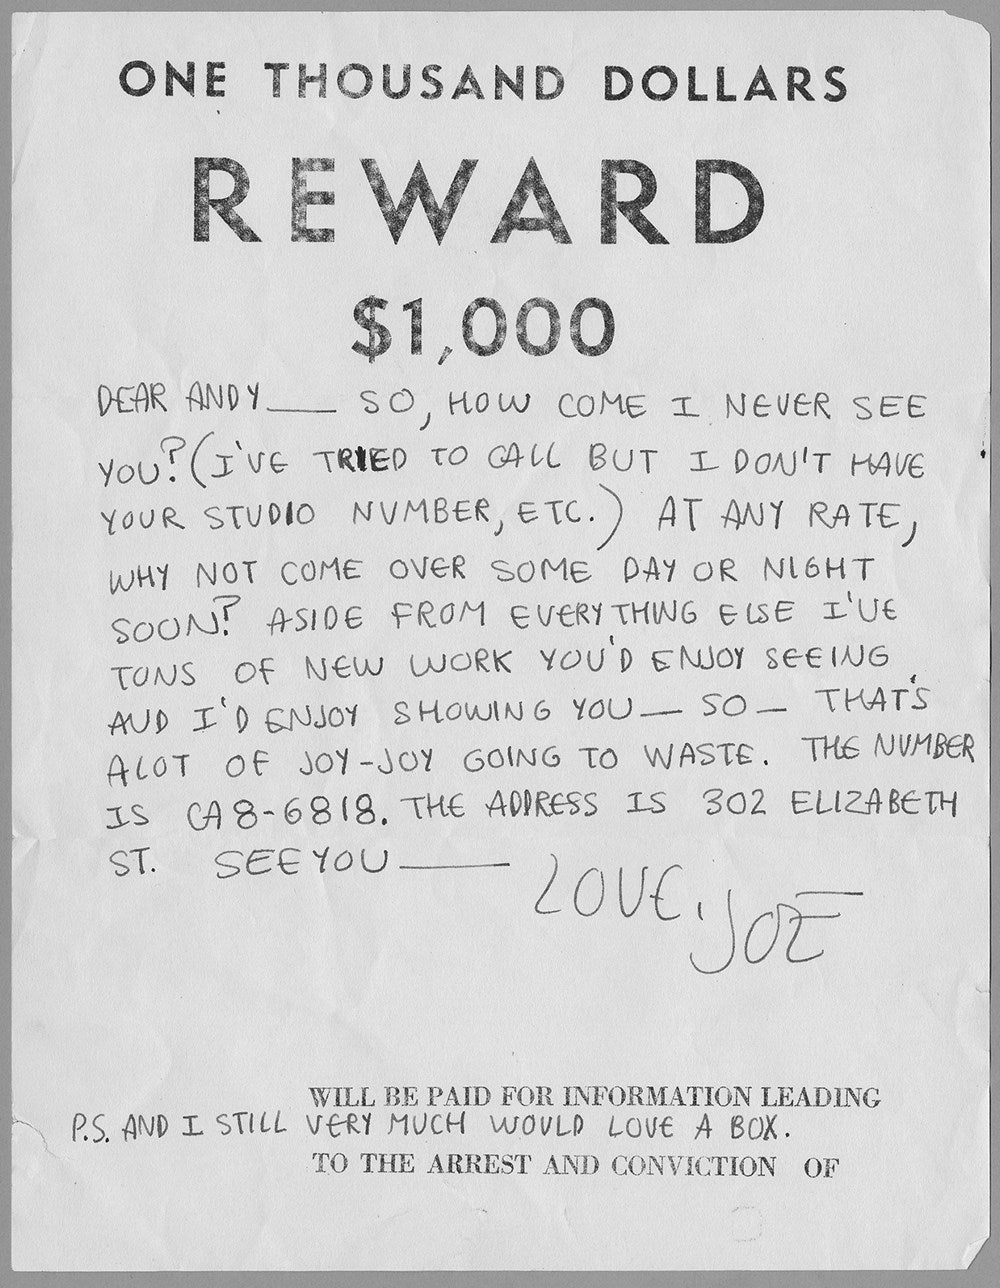 ONE THOUSAND DOLLARS
REWARD
$1,000
DEAR ANDY___ SO, HOW COME I NEVER SEE
YOU? (I'VE TRIED TO CALL BUT I DON'T HAVE
YOUR STUDIO NUMBER, ETC.) AT ANY RATE,
WHY NOT COME OVER SOME DAY OR NIGHT
SOON? ASIDE FROM EVERYTHING ELSE I'VE
TONS OF NEW WORK YOU'D ENJOY SEEING
AND I'D ENJOY SHOWING YOU — SO — THAT'S
ALOT OF JOY-JOY GOING TO WASTE. THE NUMBER
IS CA8-6818. THE ADDRESS IS 302 ELIZABETH
ST. SEE YOU ———
LOVE, JOE
WILL BE PAID FOR INFORMATION LEADING
P.S. AND I STILL VERY MUCH WOULD LOVE A BOX.
TO THE ARREST AND CONVICTION OF